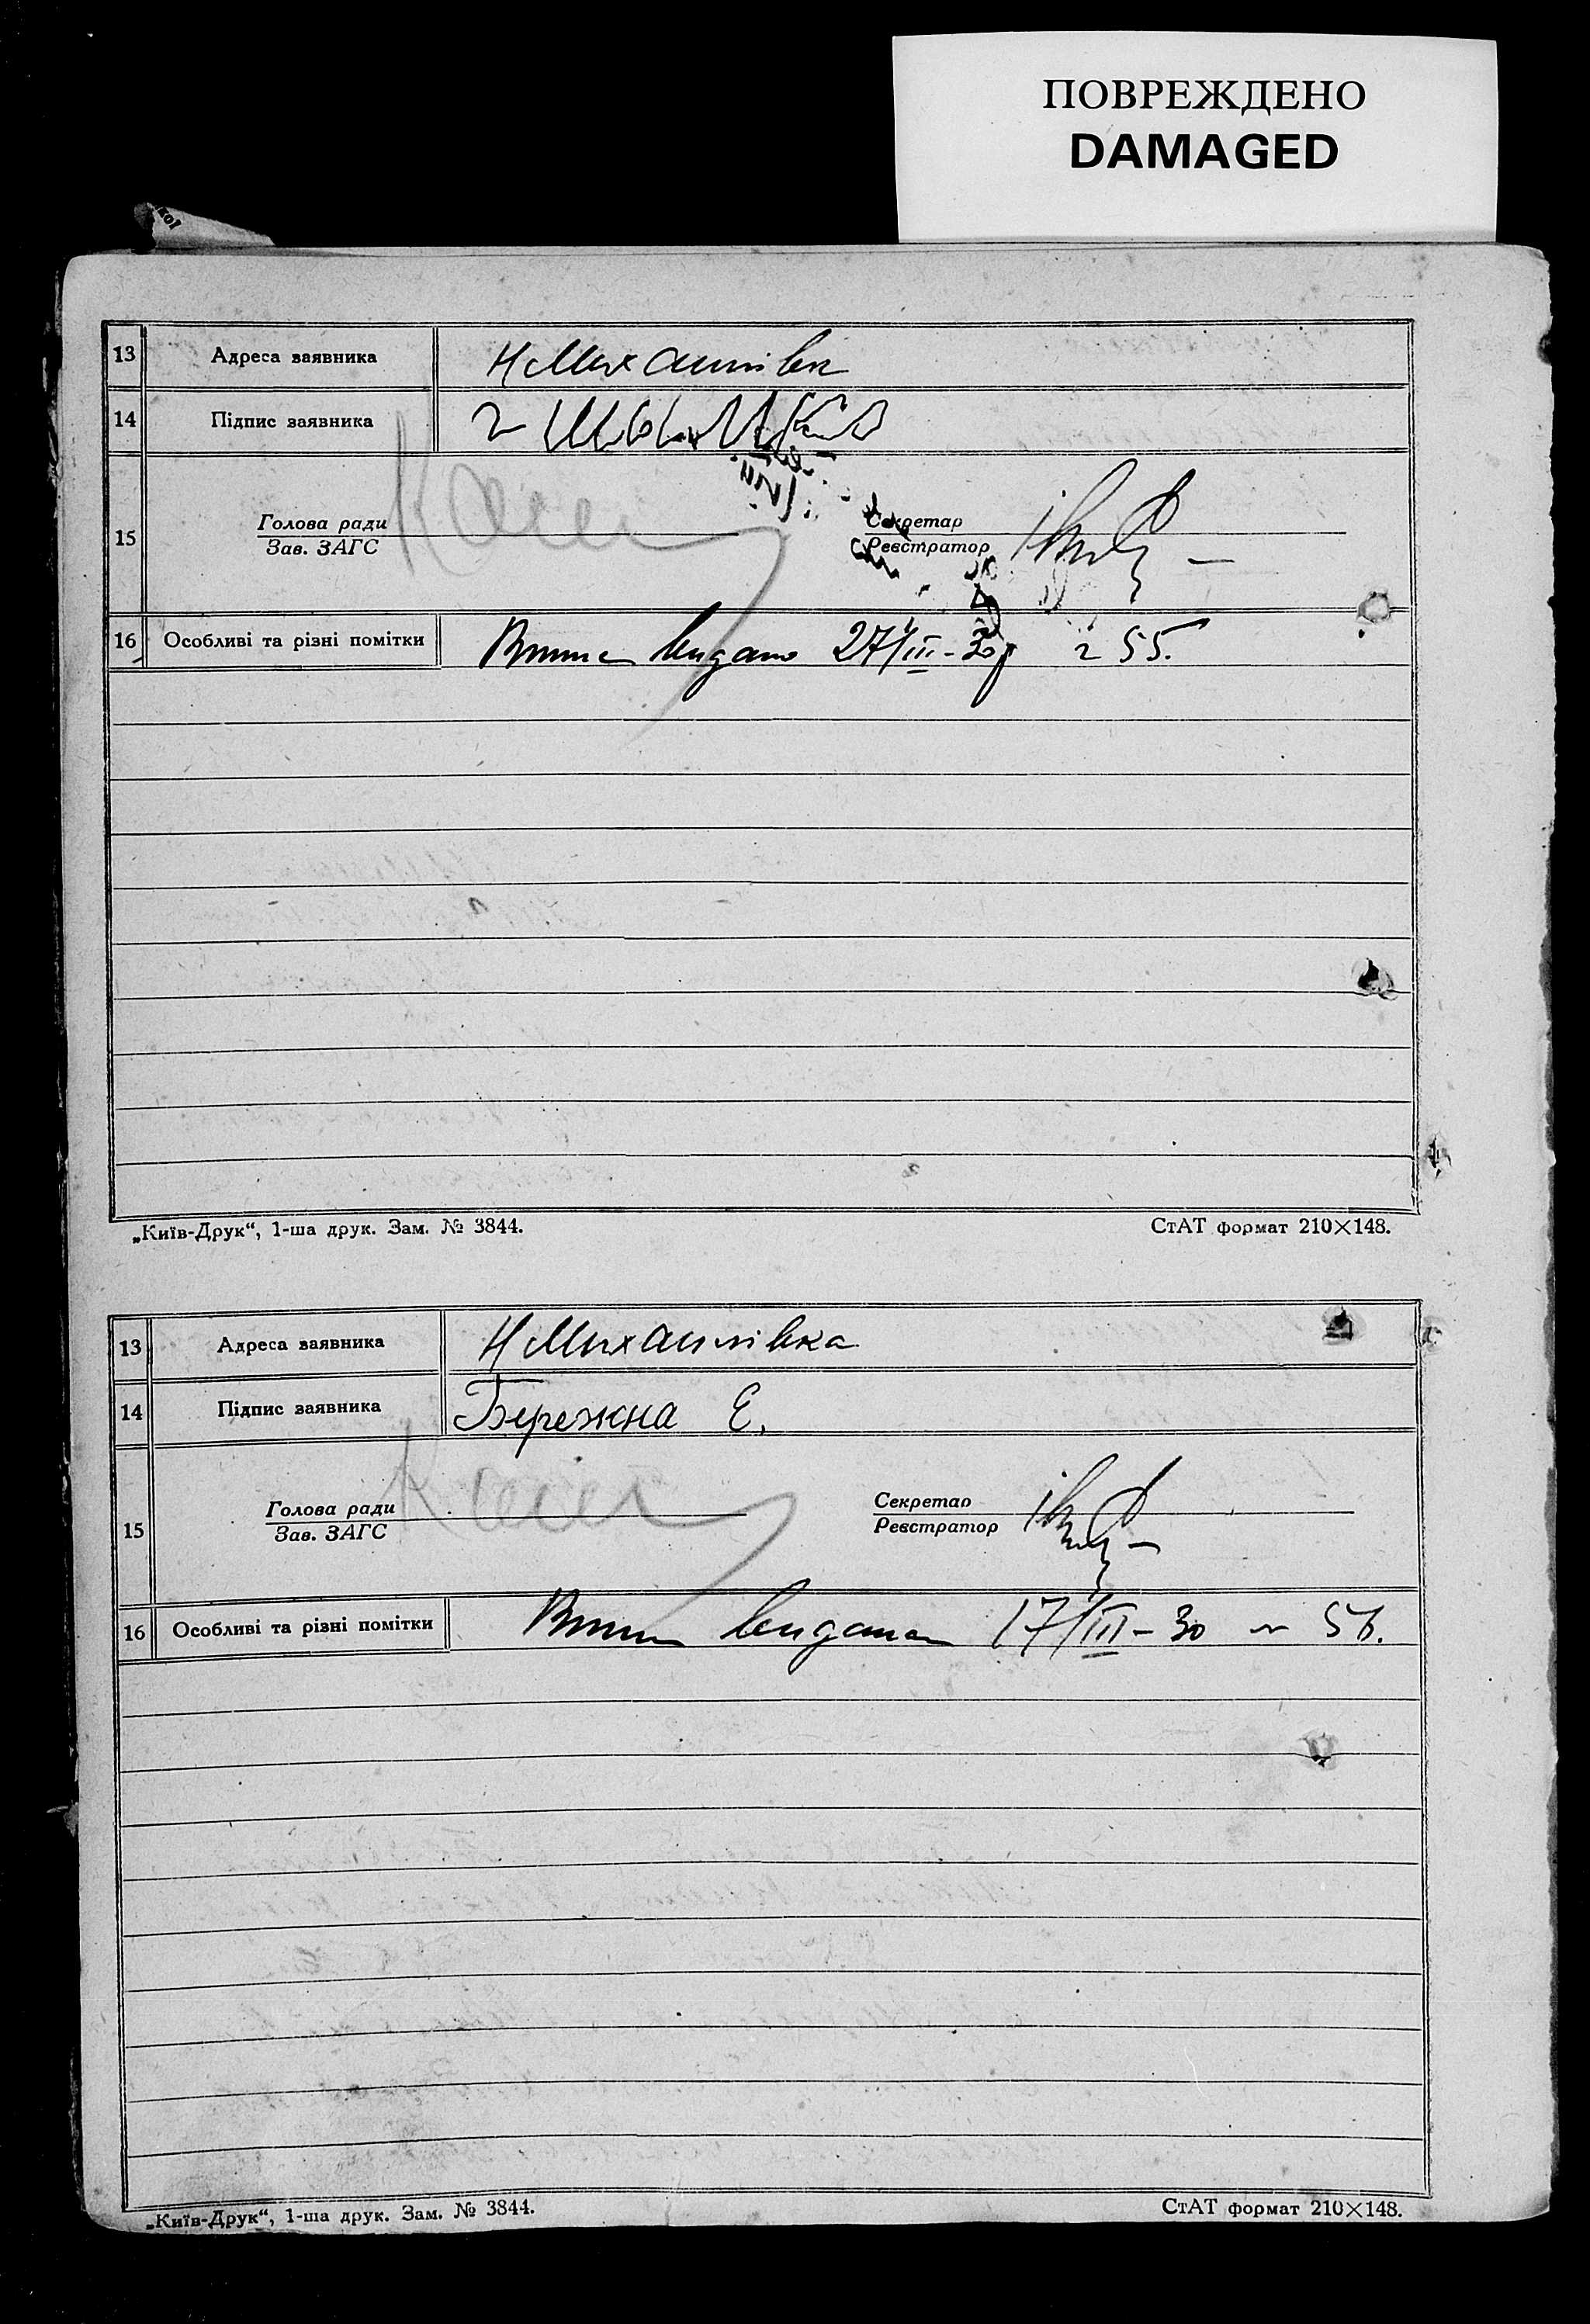 ПОВРЕЖДЕНО
DAMAGED
13 Адреса заявника Н Михайлівк
14 Підпис заявника
15 Голова ради Секретар
Зав. ЗАГС Реєстратор
16 Особливі та різні помітки видано 27/III-30р 55.
„Київ-Друк“, 1-ша друк. Зам. № 3844. СтАТ формат 210×148.
13 Адреса заявника Н Михайлівка
14 Підпис заявника Бережна Є.
15 Голова ради Секретар
Зав. ЗАГС Реєстратор
16 Особливі та різні помітки видана 17/III-30 56.
„Київ-Друк“, 1-ша друк. Зам. № 3844. СтАТ формат 210×148.